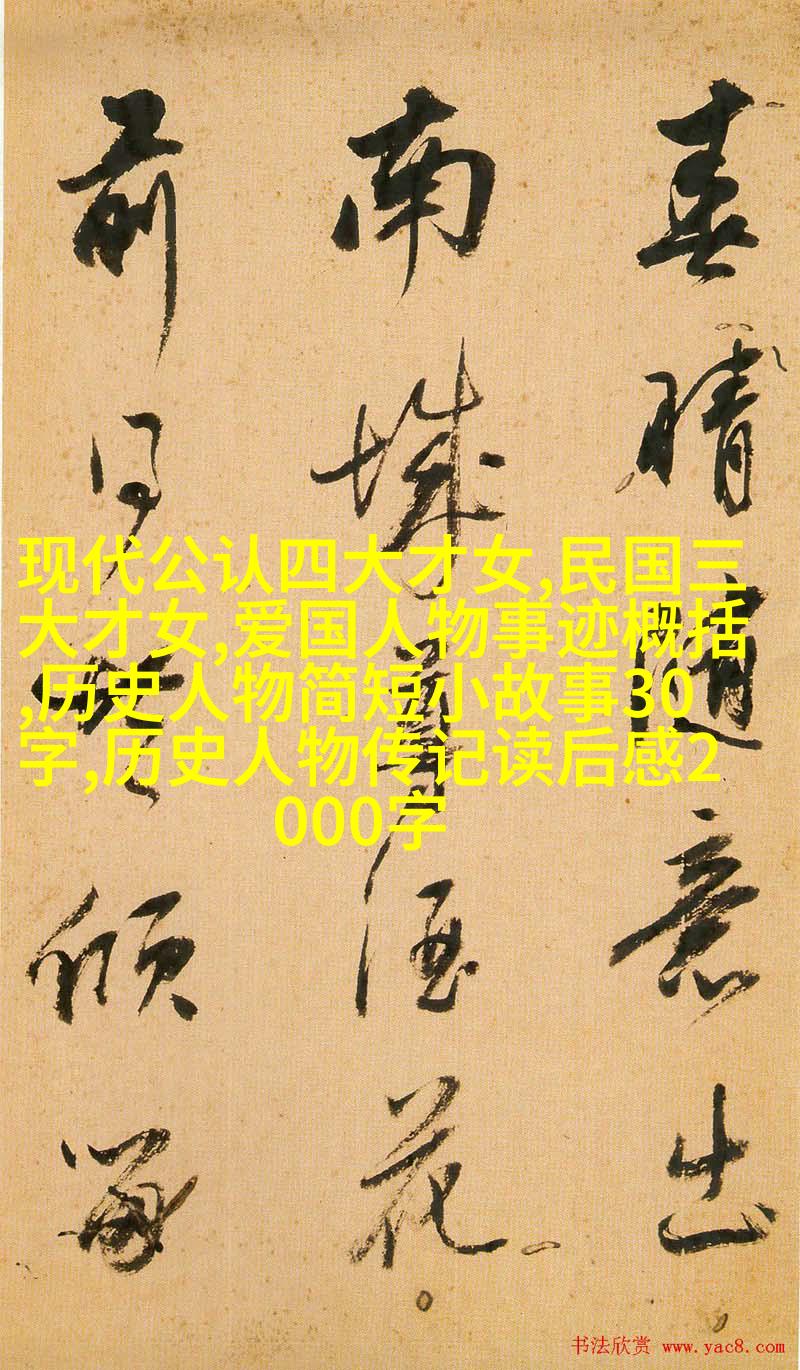 春晴随意出
南城尊酒花
前同
倾
现代公认四大才女,民国三
大才女,爱国人物事迹概括
,历史人物简短小故事30
字,历史人物传记读后感2
000字
书法欣赏 www.yac8.com